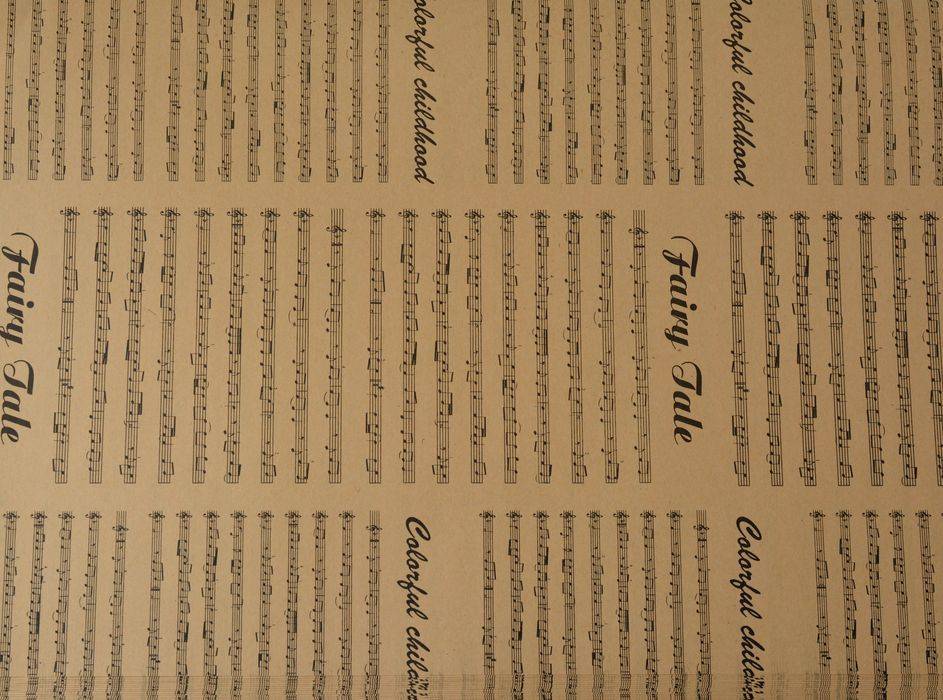 Colorful childhood
Colorful childhood
Fairy Tale
Fairy Tale
Colorful
Colorful